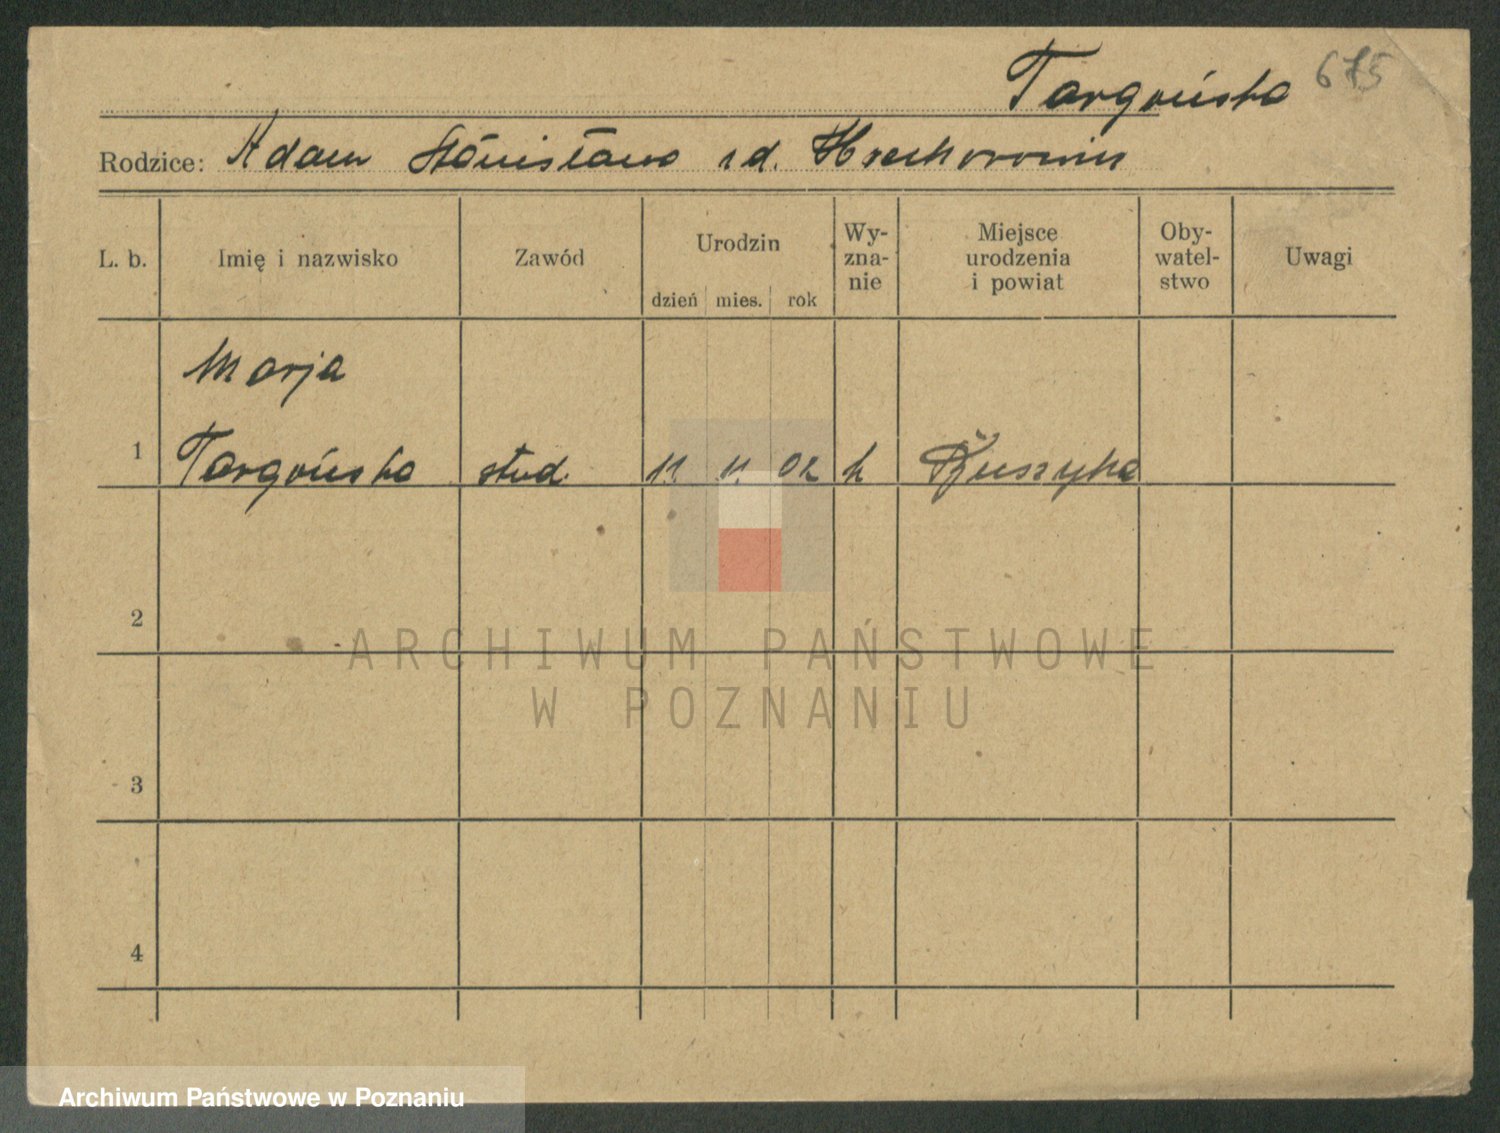 Targońska 675
Rodzice: Adam Stanisława z d.
L. b. Imię i nazwisko Zawód Urodzin dzień mies. rok Wy-zna-nie Miejsce urodzenia i powiat Oby-watel-stwo Uwagi
Marja
1 Targońska stud. 11 11. 02
2
ARCHIWUM PAŃSTWOWE
W POZNANIU
3
4
Archiwum Państwowe w Poznaniu